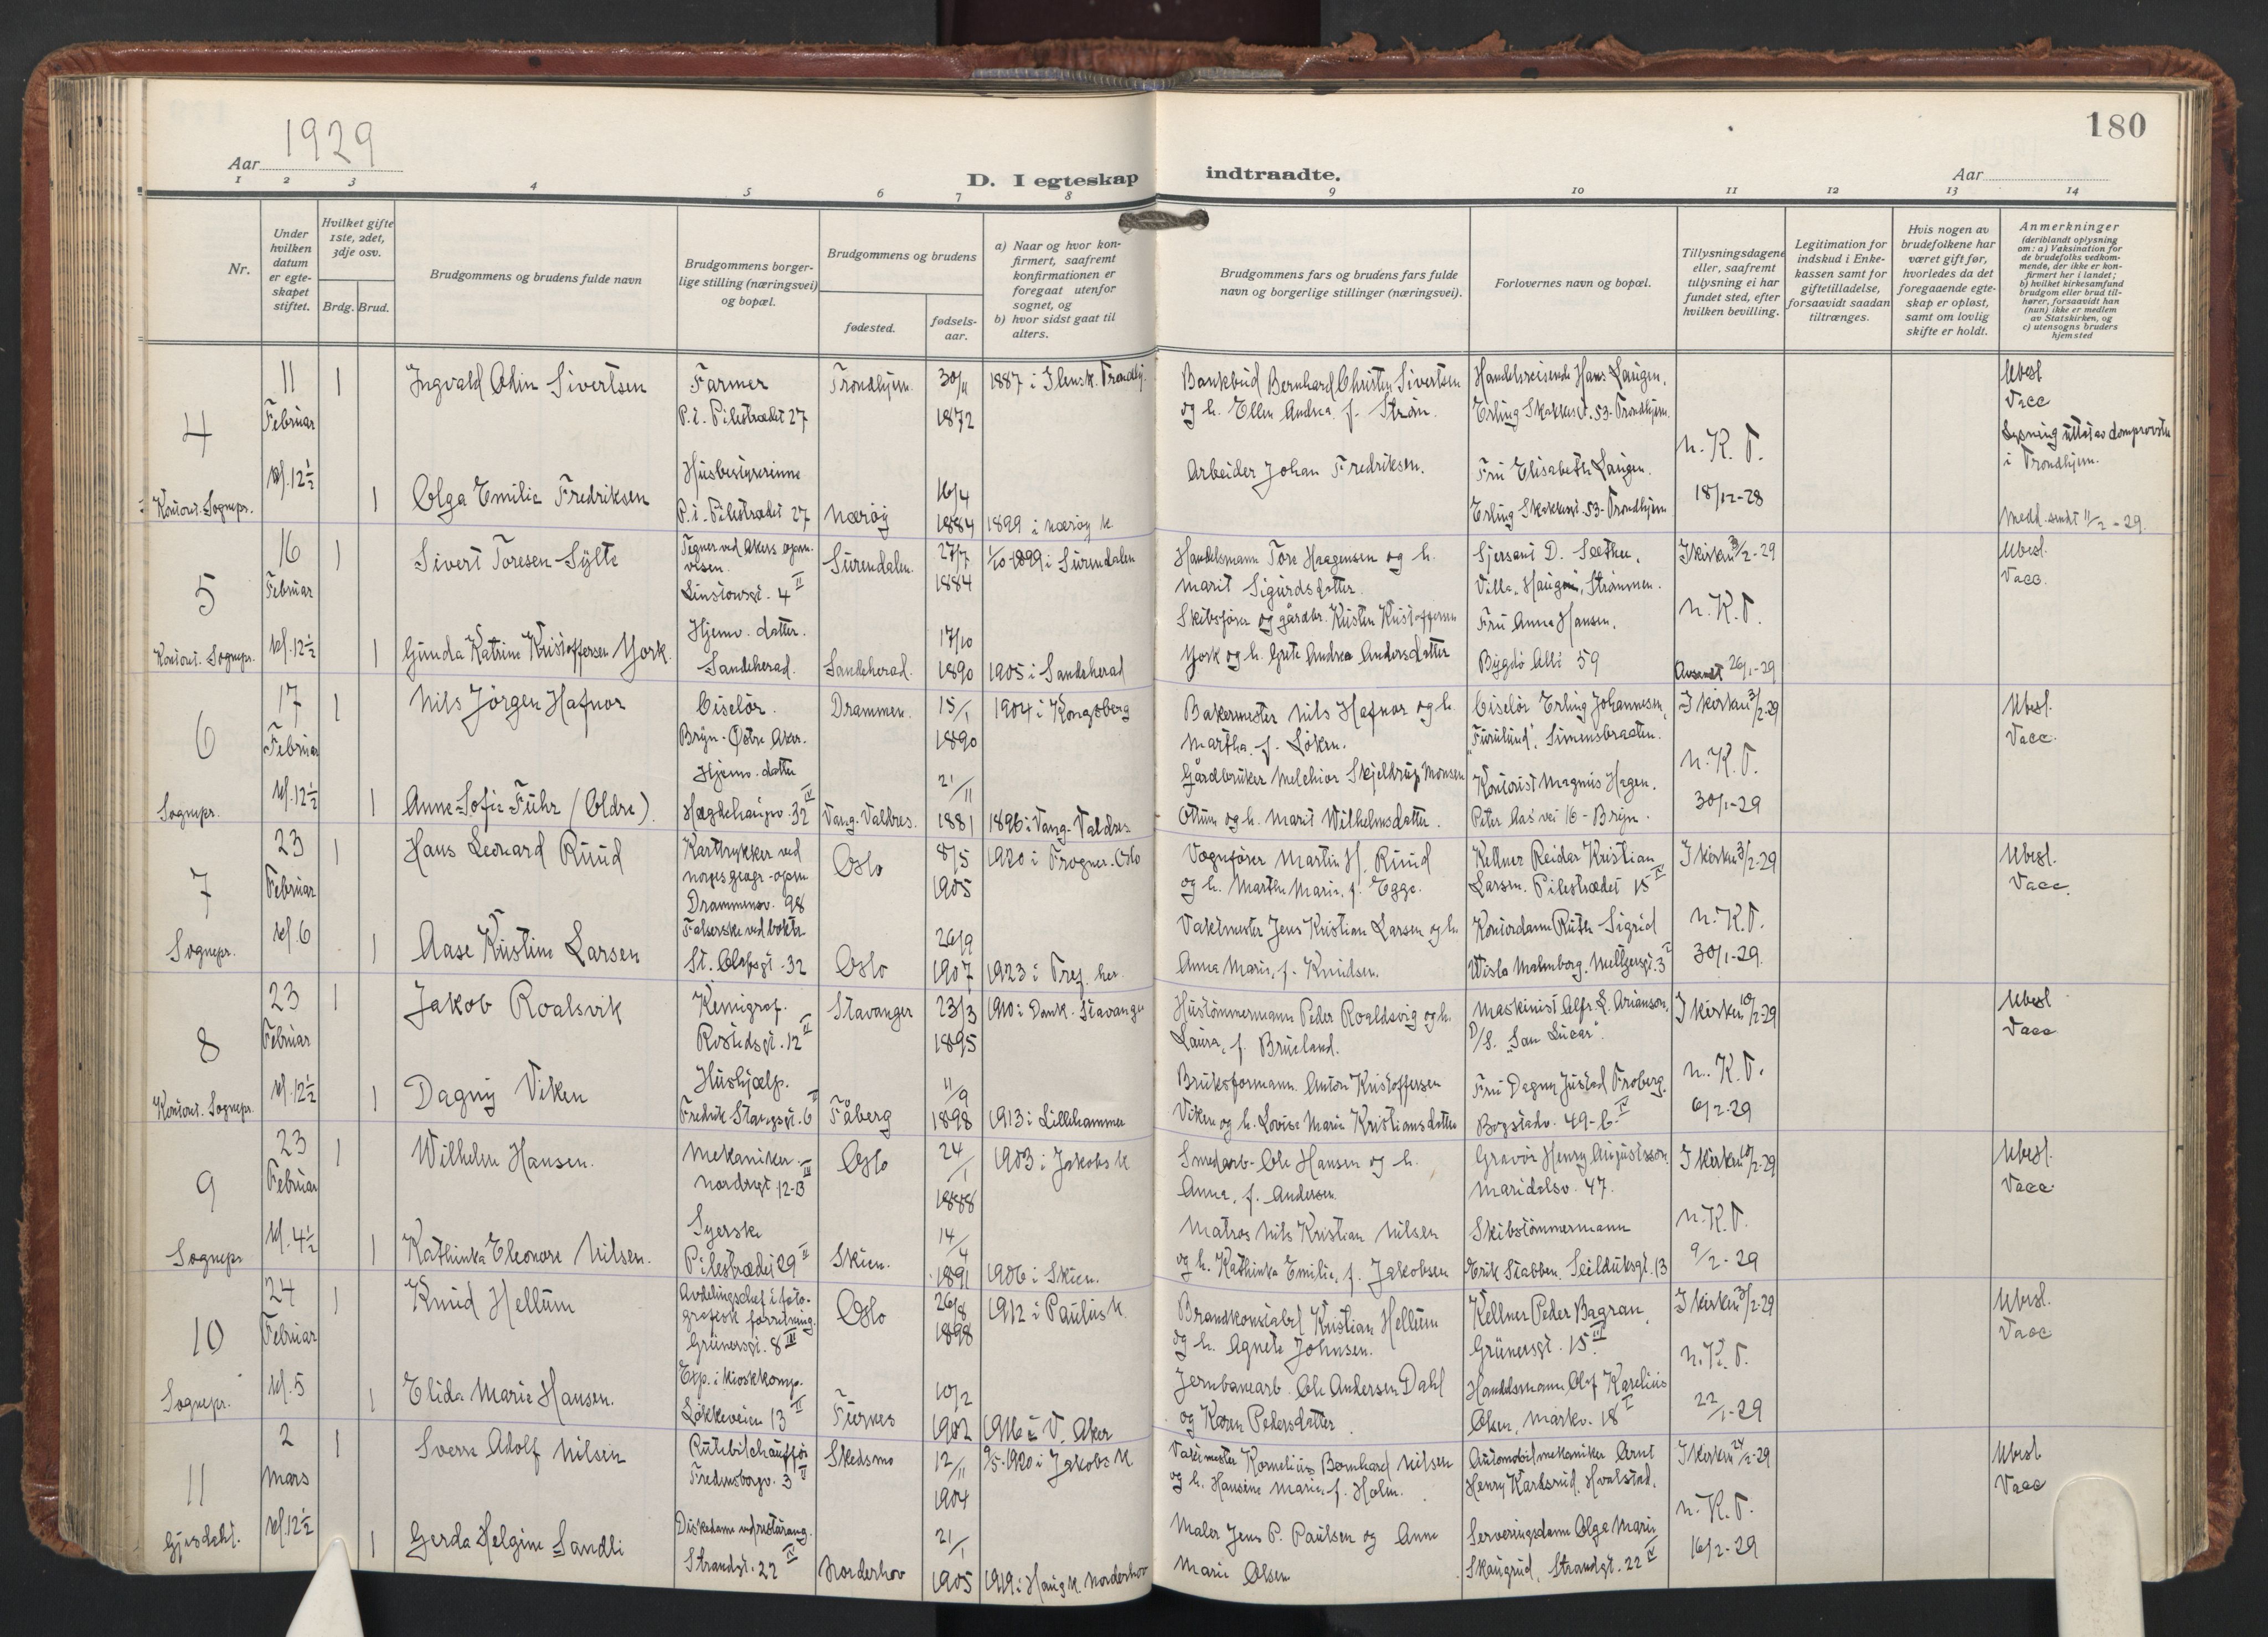 180
Aar 1929
D. I egteskap indtraadte.
Aar
1 2 3 4 5 6 7 8 9 10 11 12 13 14
Nr.
Under hvilken datum er egteskapet stiftet.
Hvilket gifte 1ste, 2det, 3dje osv.
Brdg. Brud.
Brudgommens og brudens fulde navn
Brudgommens borgerlige stilling (næringsvei) og bopæl.
Brudgommens og brudens
fødested.
fødselsaar.
a) Naar og hvor konfirmert, saafremt konfirmationen er foregaat utenfor sognet, og
b) hvor sidst gaat til alters.
Brudgommens fars og brudens fars fulde navn og borgerlige stillinger (næringsvei).
Forlovernes navn og bopæl.
Tillysningsdagene eller, saafremt tillysning ei har fundet sted, efter hvilken bevilling.
Legitimation for indskud i Enkekassen samt for giftetilladelse, forsaavidt saadan tiltrænges.
Hvis nogen av brudefolkene har været gift før, hvorledes da det foregaaende egteskap er opløst, samt om lovlig skifte er holdt.
Anmerkninger
(deriblandt oplysning om: a) Vaksination for de brudefolks vedkommende, der ikke er konfirmert her i landet; b) hvilket kirkesamfund brudgom eller brud tilhører, forsaavidt han (hun) ikke er medlem av Statskirken, og c) utensogns bruders hjemsted
4
11 Februar kl. 12½
Kontort. Sognepr.
1 Ingvald Odin Sivertsen
Farmer
P.t. Pilestrædet 27
Trondhjem.
30/11 1872
1887 i Ilensk. Trondhj.
Bankbud Bernhard Christen Sivertsen
og h. Ellen Andrea f. Strøm.
Handelsreisende Hans Laugen,
Erling Skakkesgt. 53- Trondhjem.
1 Olga Emilie Fredriksen
Husbestyrerinne
P.t. Pilestrædet 27
Nærøy
16/4 1884
1899 i Nærøy k.
Arbeider Johan Fredriksen.
Fru Elisabeth Laugen.
Erling Skakkesgt. 53- Trondhjem
N.K.T.
18/12-28
Ubesl
Vacc
Lysning uttat av domprovsten
i Trondhjem.
Medd. sendt 11/2-29.
5
16 Februar kl. 12½
Kontort. Sognepr.
1 Sivert Toresen Sylte
Tegner ved Akers opmvesen.
Linstowsgt. 4 II
Surendalen.
27/7 1884
1/10-1899 i Surendalen
Handelsmann Tore Haagensen og h.
Marit Sigurdsdatter.
Sjersant D. Sæther,
Villa "Haugen", Strømmen.
1 Gunda Katrine Kristoffersen York.
Hjemv. datter.
Sandeherad.
Sandeherad.
17/10 1890
1905 i Sandeherad
Skibsfører og gårdbr. Kristen Kristoffersen
York og h. Grete Andrea Andersdatter
Fru Anna Hansen,
Bygdø Allé 59
I kirken 3/2-29
N.K.T.
Avsendt 26/1-29
Ubesl.
Vacc.
6
17 Februar kl. 12½
Sognepr.
1 Nils Jörgen Hafnor
Ciselör.
Bryn-Østre Aker.
Drammen.
15/1 1890
1904 i Kongsberg
Bakermester Nils Hafnor og h.
Martha f. Løken.
Ciselör Erling Johannesen,
"Furulund", Simensbraaten.
1 Anne-Sofie Führ (Oldre).
Hjemv. datter
Hægdehaugsv. 32 IV
Vang. Valdres.
21/11 1881
1896 i Vang-Valdres
Gårdbruker Melchior Skjeldrup Monsen
Ottum og h. Marit Wilhelmsdatter.
Kontorist Magnus Hagen.
Peter Aas vei 16- Bryn.
I kirken 3/2-29
N.K.T.
30/1-29
Ubesl.
Vacc.
7
23 Februar kl. 6
Sognepr.
1 Hans Leonard Ruud
Karttrykker ved
Norges geogr-opm
Drammensv. 98
Oslo
8/5 1905
1920 i Frogner. Oslo
Vognfører Martin H. Ruud
og h. Marthe Marie, f. Egge.
Kellner Reidar Kristian
Larsen. Pilestrædet 15 IV
1 Aase Kristine Larsen
Falserske ved boktr.
St. Olafsgt. 32
Oslo
26/9 1907
1923 i Tref. her.
Vaktmester Jens Kristian Larsen og h.
Anna Marie, f. Knudsen.
Kontordame Ruth Sigrid
Wisla Malmborg. Meltzersgt. 3 I
I kirken 3/2-29
N.K.T.
30/1-29.
Ubesl.
Vacc.
8
23 Februar kl. 12½
Kontort. Sognepr.
1 Jakob Roalsvik
Kemigraf.
Rostedsgt. 12 II
Stavanger
23/3 1895
1910 i Domk. Stavanger
Hustömmermann Peder Roaldsvig og h.
Laura, f. Brueland.
Maskinist Alfr. L. Arianson,
D/S. "San Lucar".
1 Dagny Viken
Hushjælp.
Fredrik Stangsgt. 6 II
Fåberg
11/9 1898
1913 i Lillehammer
Bruksformann Anton Kristoffersen
Viken og h. Lovise Marie Kristiansdatter
Fru Dagny Justad Froberg.
Bogstadv. 49-b IV
I kirken 10/2-29
N.K.T.
6/2-29
Ubesl
Vacc
9
23 Februar kl. 4½
Sognepr
1 Wilhelm Hansen.
Mekaniker
Nordregt 12-B III
Oslo
24/1 1888
1903 i Jakobs k
Smedarb- Ole Hansen og h.
Anna, f. Andersen.
Gravör Henry Augustsson.
Maridalsv. 47.
1 Kathinka Eleonore Nilsen.
Syerske
Pilestrædet 29 II
Skien.
14/4 1891
1906 i Skien.
Matros Nils Kristian Nilsen
og h. Kathinka Emilie, f. Jakobsen
Skibstömmermann
Erik Stabben. Seilduksgt. 13
I kirken 10/2-29
N.K.T.
9/2-29
Ubesl.
Vacc.
10
24 Februar kl. 5
Sognepr.
1 Knud Hellum
Avdelingschef i fotografisk forretning.
Grünersgt. 8 III
Oslo
26/8 1898
1912 i Paulus k.
Brandkonstabel Kristian Hellum
og h. Agnete Johnsen.
Kellner Peder Bagran,
Grünersgt. 15 III
1 Elida Marie Hansen.
Exp. i kioskkomp.
Løkkeveien 13 II
Furnes
10/2 1902
1916 i V. Aker
Jernbanearb. Ole Andersen Dahl
og Karen Pedersdatter.
Handelsmann Olaf Karelius
Olsen, Markv. 18 I
I kirken 3/2-29
N.K.T.
22/1-29
Ubesl.
Vacc
11
2 Mars kl. 12½
Gjesdahl.
1 Sverre Adolf Nilsen
Rutebilchauffør
Fredensborgv. 3 II
Skedsmo
12/11 1904
9/5-1920 i Jakobs k.
Vaktmester Kornelius Bernhard Nilsen
og h. Hansine Marie f. Holm.
Automobilmekaniker Arnt
Henry Karlsrud, Hvalstad.
1 Gerda Helgine Sandli
Diskedame ved restaurang.
Strandgt. 22 IV
Norderhov
21/1 1905
1919 i Haug k. Norderhov
Maler Jens P. Paulsen og Anne
Marie Olsen
Serveringsdame Olga Marie
Skaugrud, Strandgt. 22 IV
I kirken 24/2-29
N.K.T.
16/2-29
Ubesl
Vacc